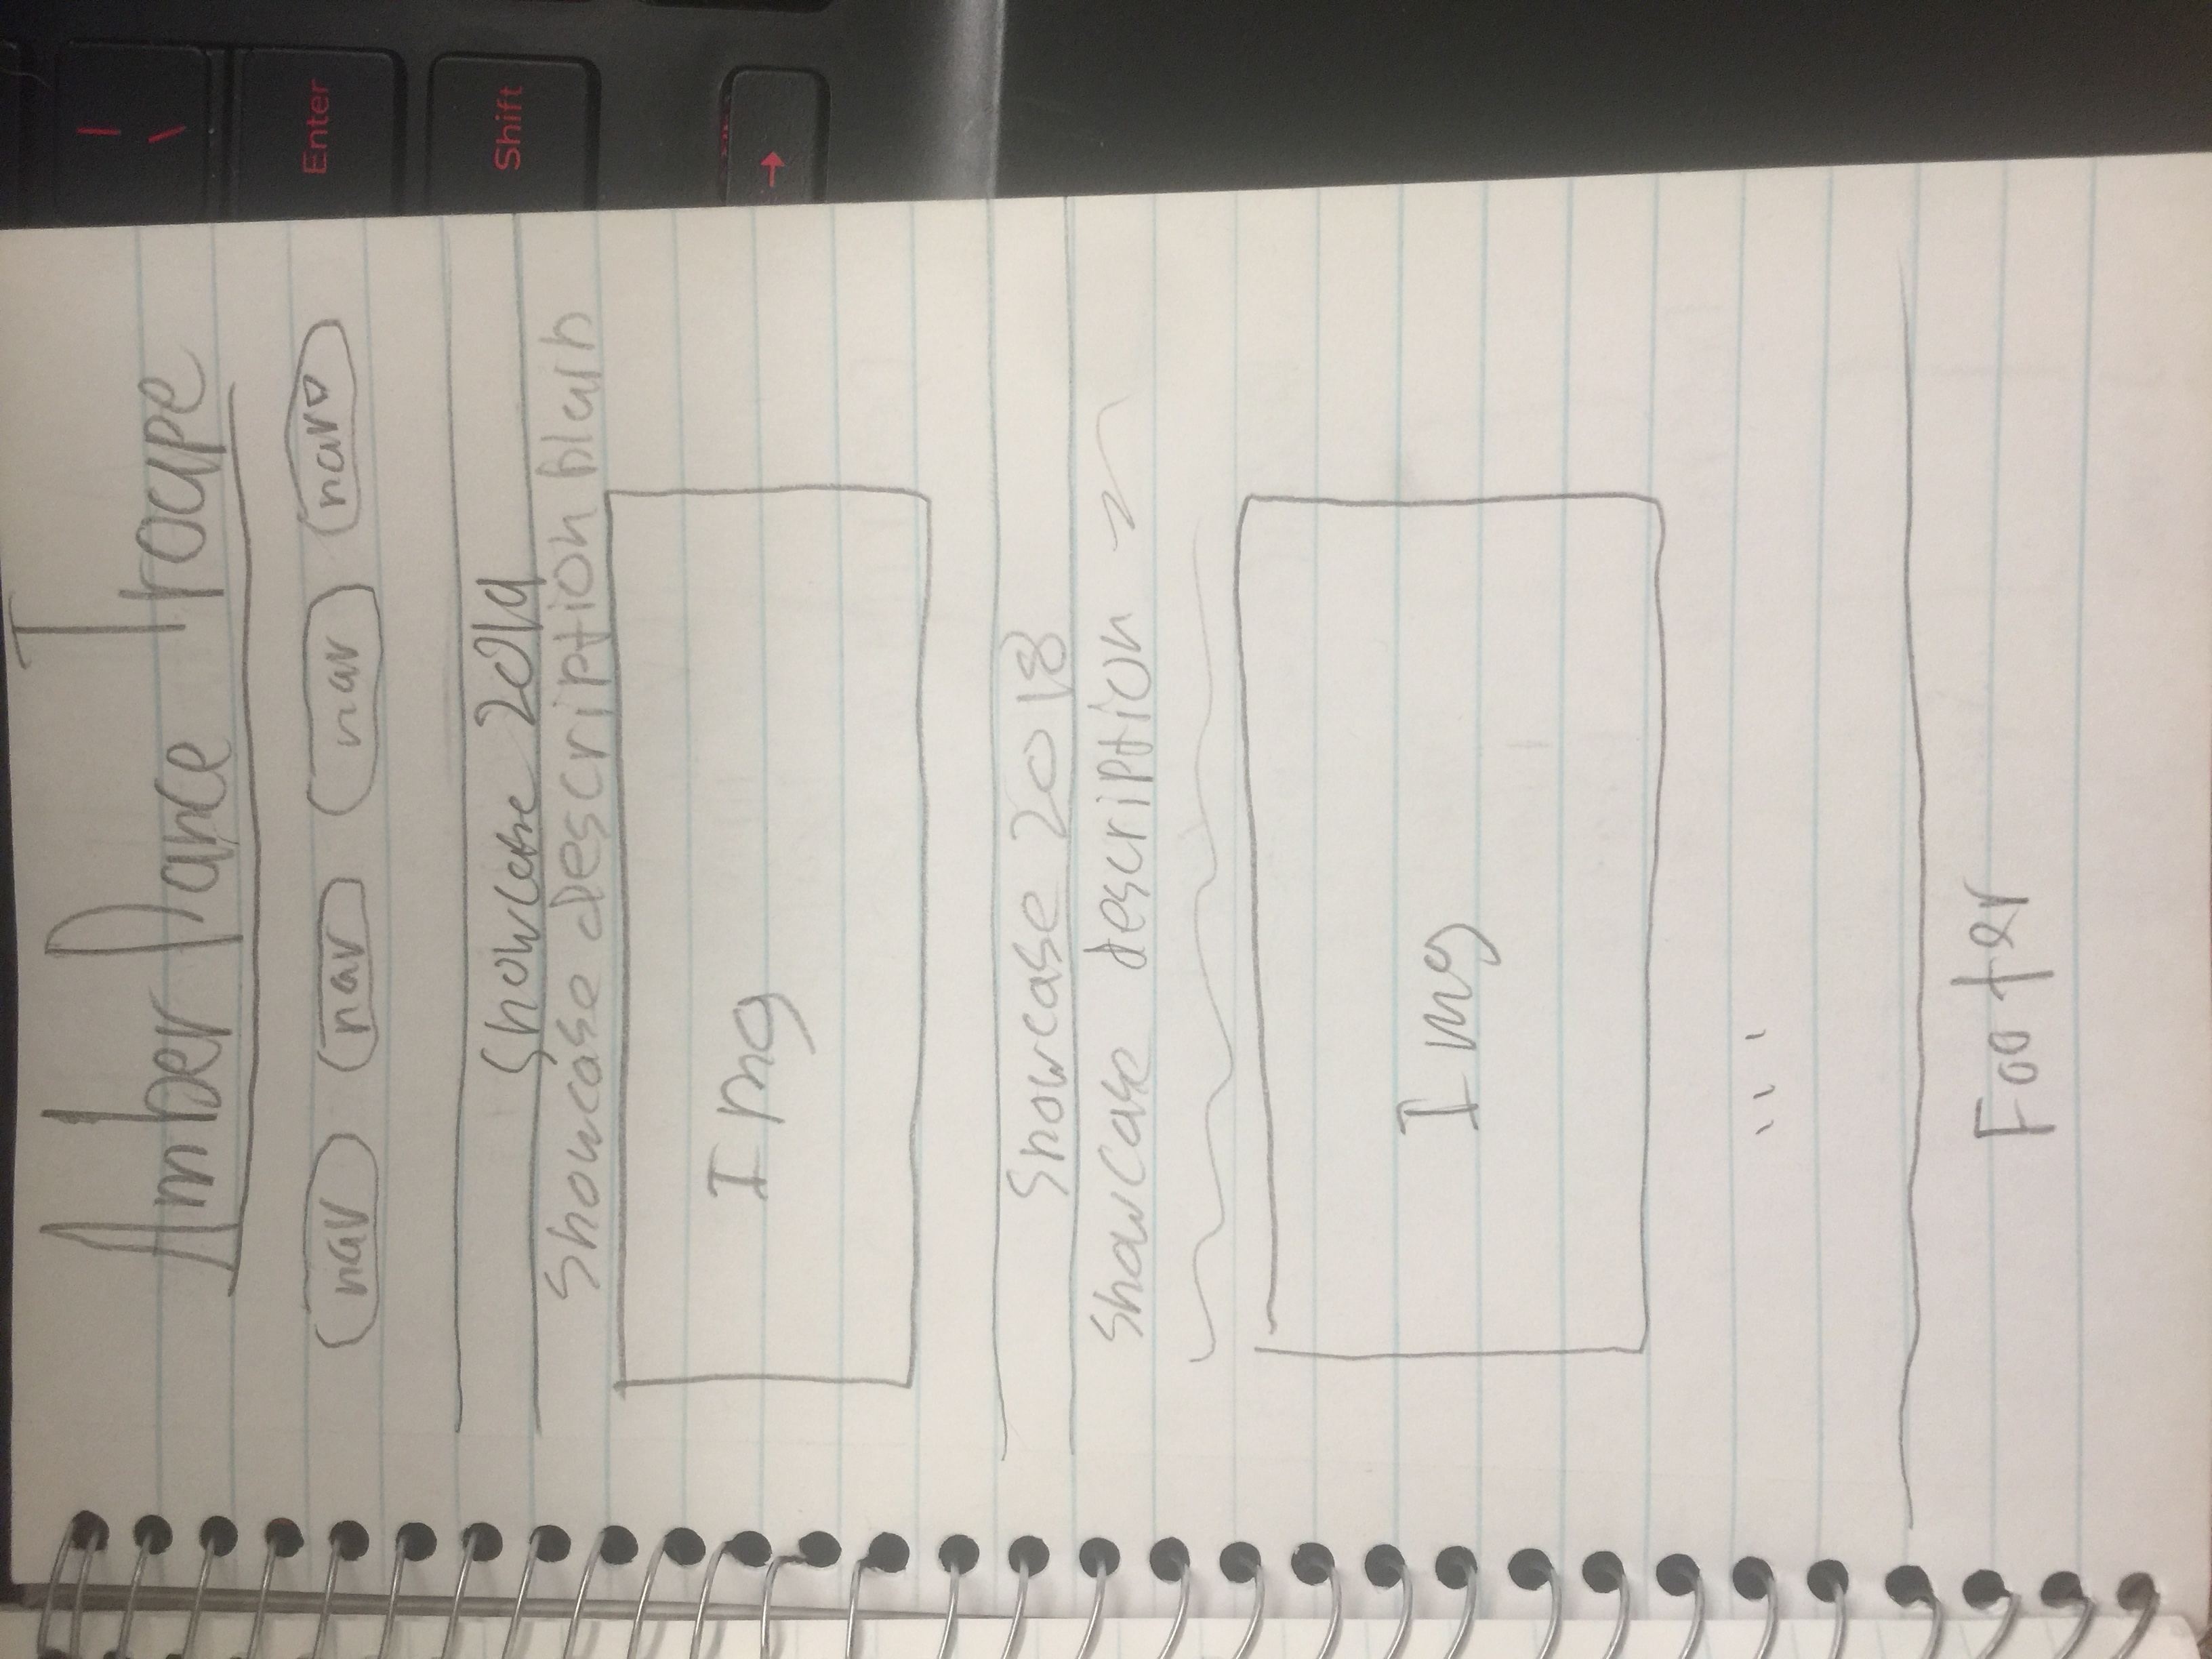 Amber Dance Troupe
nav nav nav nav
| \
Enter
Showcase 2019
Shift
Showcase description blurb
Img
→
Showcase 2018
Showcase description
Img
...
Footer